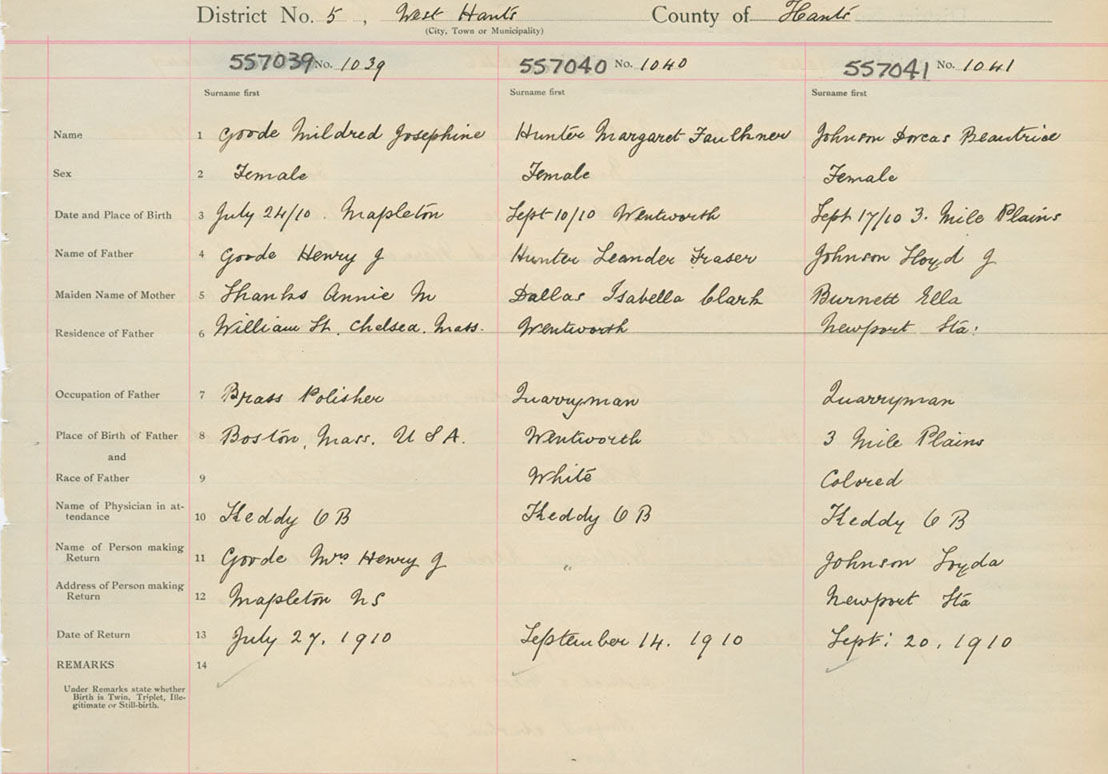 District No. 5, West Hants County of Hants
(City, Town or Municipality)
557039 No. 1039 557040 No. 1040 557041 No. 1041
Surname first Surname first Surname first
Name 1 Goode Mildred Josephine Hunter Margaret Faulkner Johnson Dorcas Beautrice
Sex 2 Female Female Female
Date and Place of Birth 3 July 24/10. Mapleton Sept 10/10 Wentworth Sept 17/10 3. Mile Plains
Name of Father 4 Goode Henry J Hunter Leander Fraser Johnson Lloyd J
Maiden Name of Mother 5 Shanks Annie M Dallas Isabella Clark Burnett Ella
Residence of Father 6 William St. Chelsea. Mass. Wentworth Newport Sta:
Occupation of Father 7 Brass Polisher Quarryman Quarryman
Place of Birth of Father 8 Boston, Mass. U S A. Wentworth 3 Mile Plains
and
Race of Father 9 White Colored
Name of Physician in at-
tendance 10 Keddy O B Keddy O B Keddy O B
Name of Person making
Return 11 Goode Mrs Henry J " Johnson
Address of Person making
Return 12 Mapleton NS Newport Sta
Date of Return 13 July 27, 1910 September 14. 1910 Sept: 20. 1910
REMARKS 14
Under Remarks state whether
Birth is Twin, Triplet, Ille-
gitimate or Still-birth.